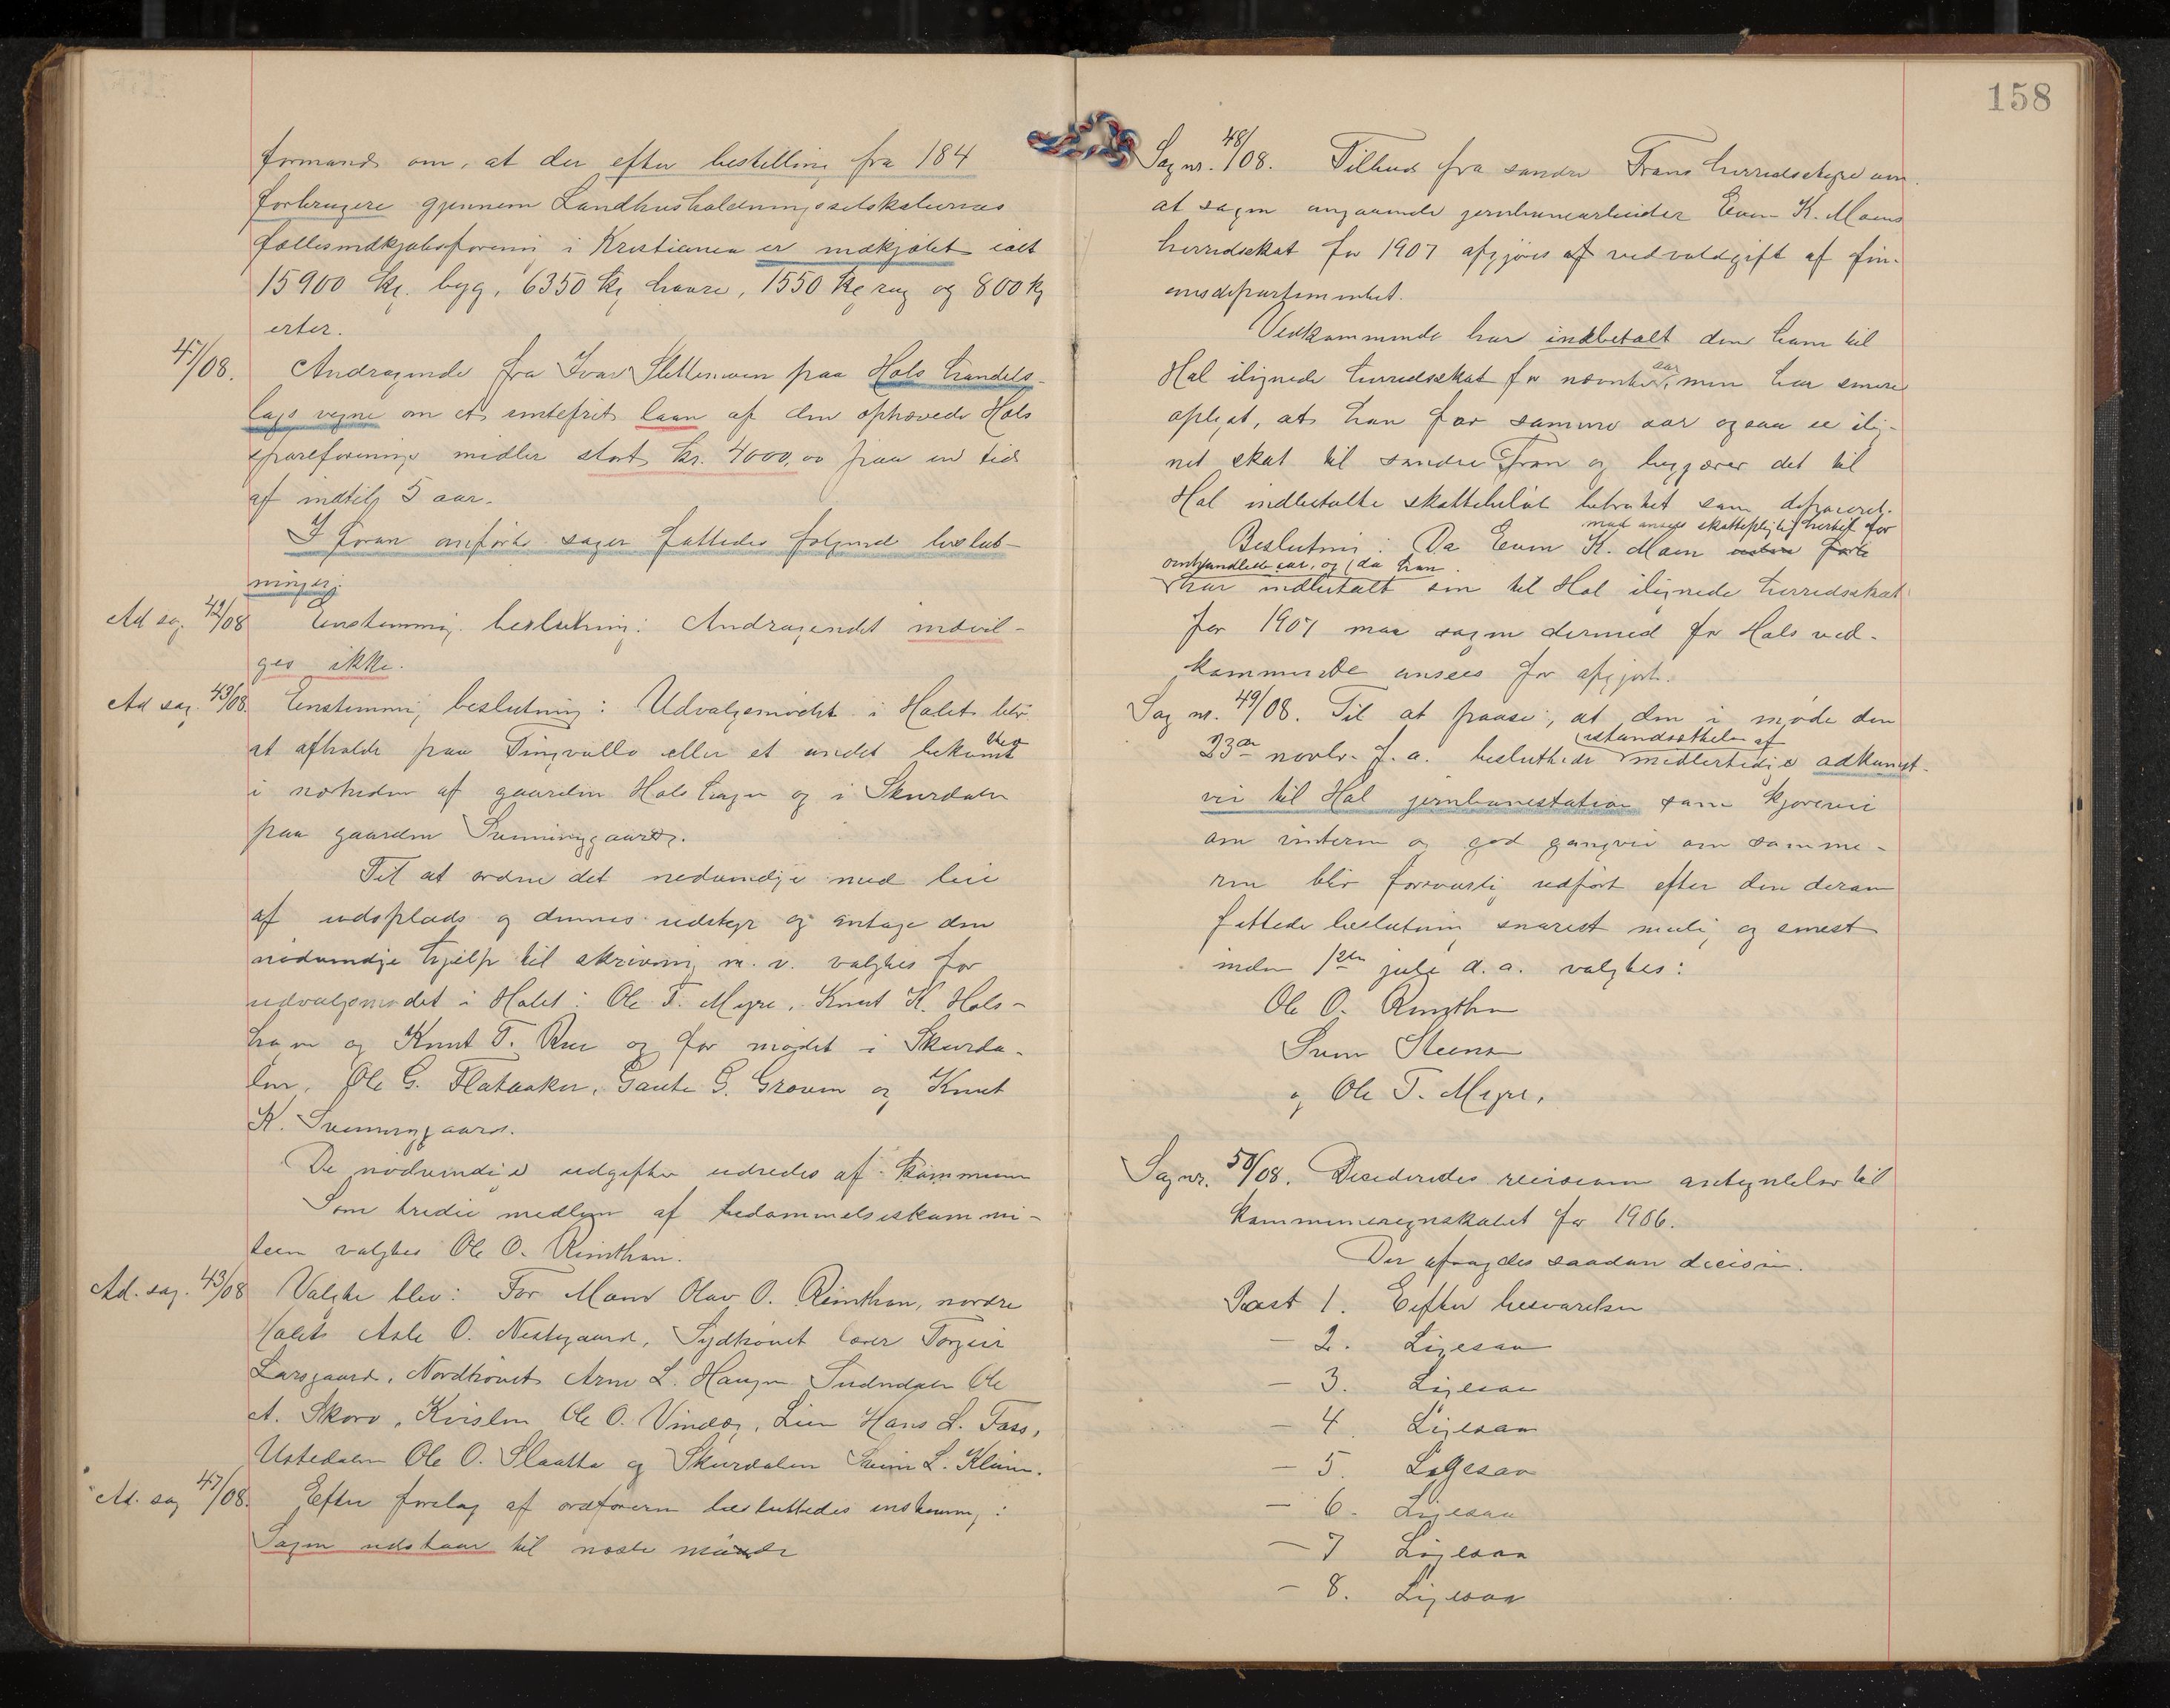 formands om, at der efter bestilling fra 184
forbrugere gjennem Landhusholdningsselskabernes
fællesindkjøbsforening i Kristiania er indkjøbt ialt
15900 kg. byg, 6350 kg havre, 1550 kg rug og 800 kg
erter.
47/08. Andragende fra Ivar Slettemoen paa Hols handels-
lags vegne om et rentefrit laan af den ophævede Hols
spareforenings midler stort kr. 4000,00 paa en tid
af indtil 5 aar.
I foran anførte sager fattedes følgende beslut-
ninger:
Ad sag 42/08 Enstemmig beslutning: Andragendet indvil-
ges ikke.
Ad sag. 43/08. Enstemmig beslutning: Udvalgsmødet i Holet blir
at afholde paa Tingvolle eller et andet bekvemt
sted
i nærheden af gaarden Hols hagen og i Skurdalen
paa gaarden Svenninggaard.
Til at ordne det nødvendige med leie
af udsplads og dennes udstyr og antage den
nødvendige hjelp til skrivning m. v. valgtes for
udvalgsmødet i Holet: Ole T. Myre, Knut K. Hols-
hagen og Knut T. Rue og for mødet i Skurda-
len, Ole G. Flataaker, Gaute G. Groven og Knut
K. Svenninggaard.
De nødvendige udgifter udredes af kommunen
Som tredie medlem af bedømmelseskommi-
teen valgtes Ole O. Reinthon.
Ad. sag. 43/08 Valgte blev: For Moen Olav O. Reinthon, nordre
Holet Asle O. Nestegaard, Sydhovet lærer Torgeir
Larsgaard, Nordhovet Arne L. Haugen Sudndalen Ole
A. Skoro, Kvislen Ole O. Vindeg, Lien Hans L. Foss,
Ustedalen Ole O. Slaatto og Skurdalen Svein L. Kleiven.
Ad. sag 47/08. Efter forslag af ordføreren besluttedes enstemmig:
Sagen udstaar til næste møde
158
Sag nr. 48/08. Tilbud fra søndre Frons herredsstyre om
at sagen angaaende jernbanearbeider Even K. Moens
herredsskat for 1907 afgjøres af ved voldgift af fin-
ansdepartementet.
Vedkommende har indbetalt den ham til
Hol ilignede herredsskat for nævnte aar, men har senere
oplyst, at han for samme aar ogsaa er ilig-
net skat til søndre Fron og begjærer det til
Hol indbetalte skattebeløb betragtet som deponeret.
maa ansees skattepligtig hertil for
Beslutning: Da Even K. Moen
omhandlede aar, og da han
har indbetalt den til Hol ilignede herredsskat
for 1907 maa sagen dermed for Hols ved-
kommende ansees for afgjort.
Sag nr. 49/08. Til at paase, at den i møde den
istandsættelse af
23de novbr. f. a. besluttede midlertidige adkomst-
vei til Hol jernbanestation som kjørevei
om vinteren og god gangvei om somme-
ren blir forsvarlig udført efter den derom
fattede beslutning snarest mulig og senest
inden 12te juli d. a. valgtes:
Ole O. Reinthon
Svein Steens
og Ole T. Myre.
Sag nr. 50/08. Decideredes revisions antegnelser til
kommuneregnskabet for 1906.
Der afsagdes saadan decision.
Post 1. Eefter besvarelsen
— 2. Ligesaa
— 3. Ligesaa
— 4. Ligesaa
— 5. Ligesaa
— 6. Ligesaa
— 7 Ligesaa
— 8. Ligesaa